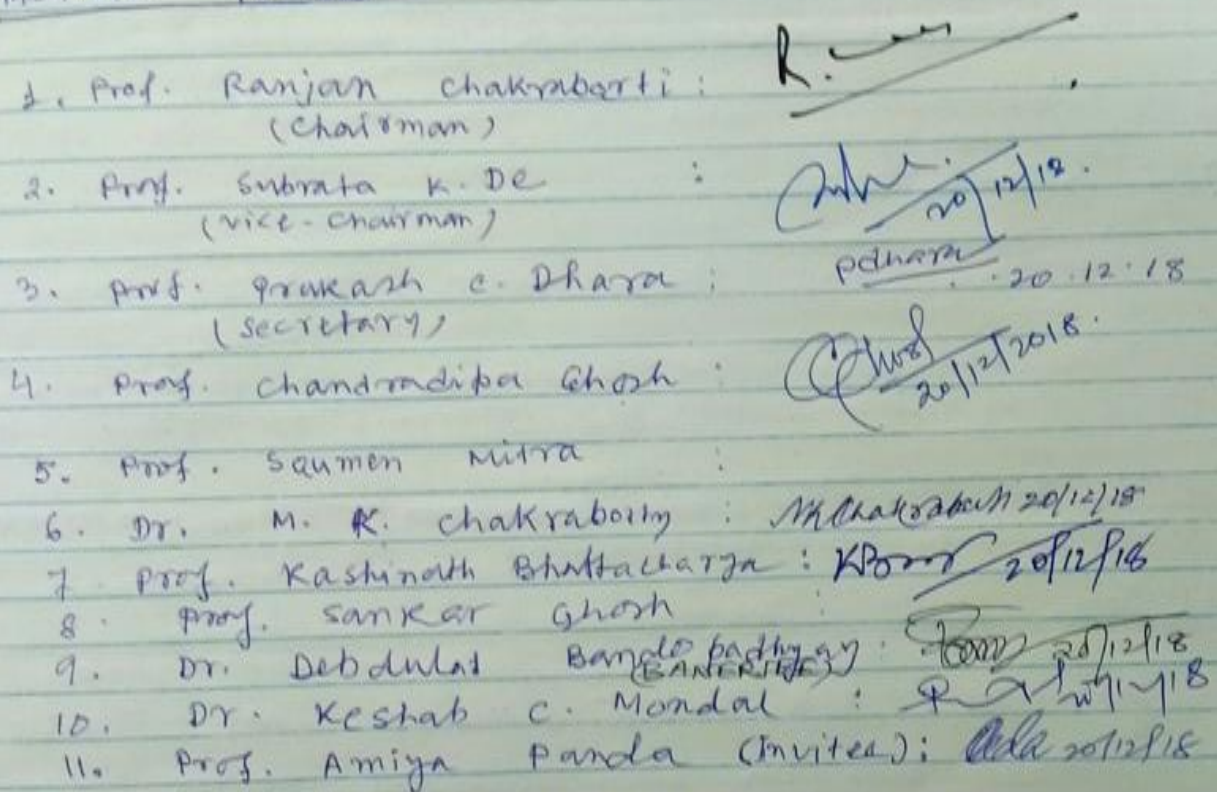 1. Prof. Ranjan Chakrabarti : R.
(Chairman)
2. Prof. Subrata K. De : 20/12/18.
(Vice-Chairman)
3. Prof. Prakash C. Dhara : pdhara 20.12.18
(Secretary)
4. Prof. Chandradipa Ghosh : CGhosh 20/12/2018.
5. Prof. Saumen Mitra :
6. Dr. M. K. Chakraborty : MKChakraborti 20/12/18
7. Prof. Kashinath Bhattacharya : 20/12/18
8. Prof. Sankar Ghosh :
9. Dr. Debdulal Bandopadhyay : 20/12/18
(BANERJEE)
10. Dr. Keshab C. Mondal : 20/12/18
11. Prof. Amiya Panda (Invitee) : 20/12/18